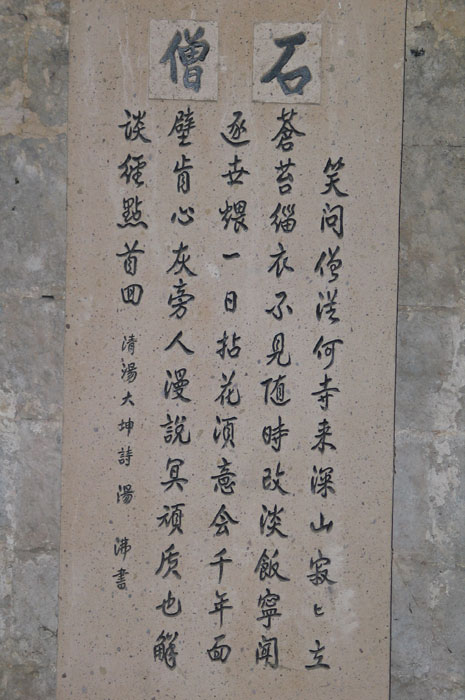 石僧
笑问僧従何寺来深山寂〻立
蒼苔缁衣不見随時改淡飯寧闻
逐世煨一日拈花湏意会千年面
壁肯心灰旁人漫説冥頑质也解
談经點首回
清湯大坤詩湯沸書